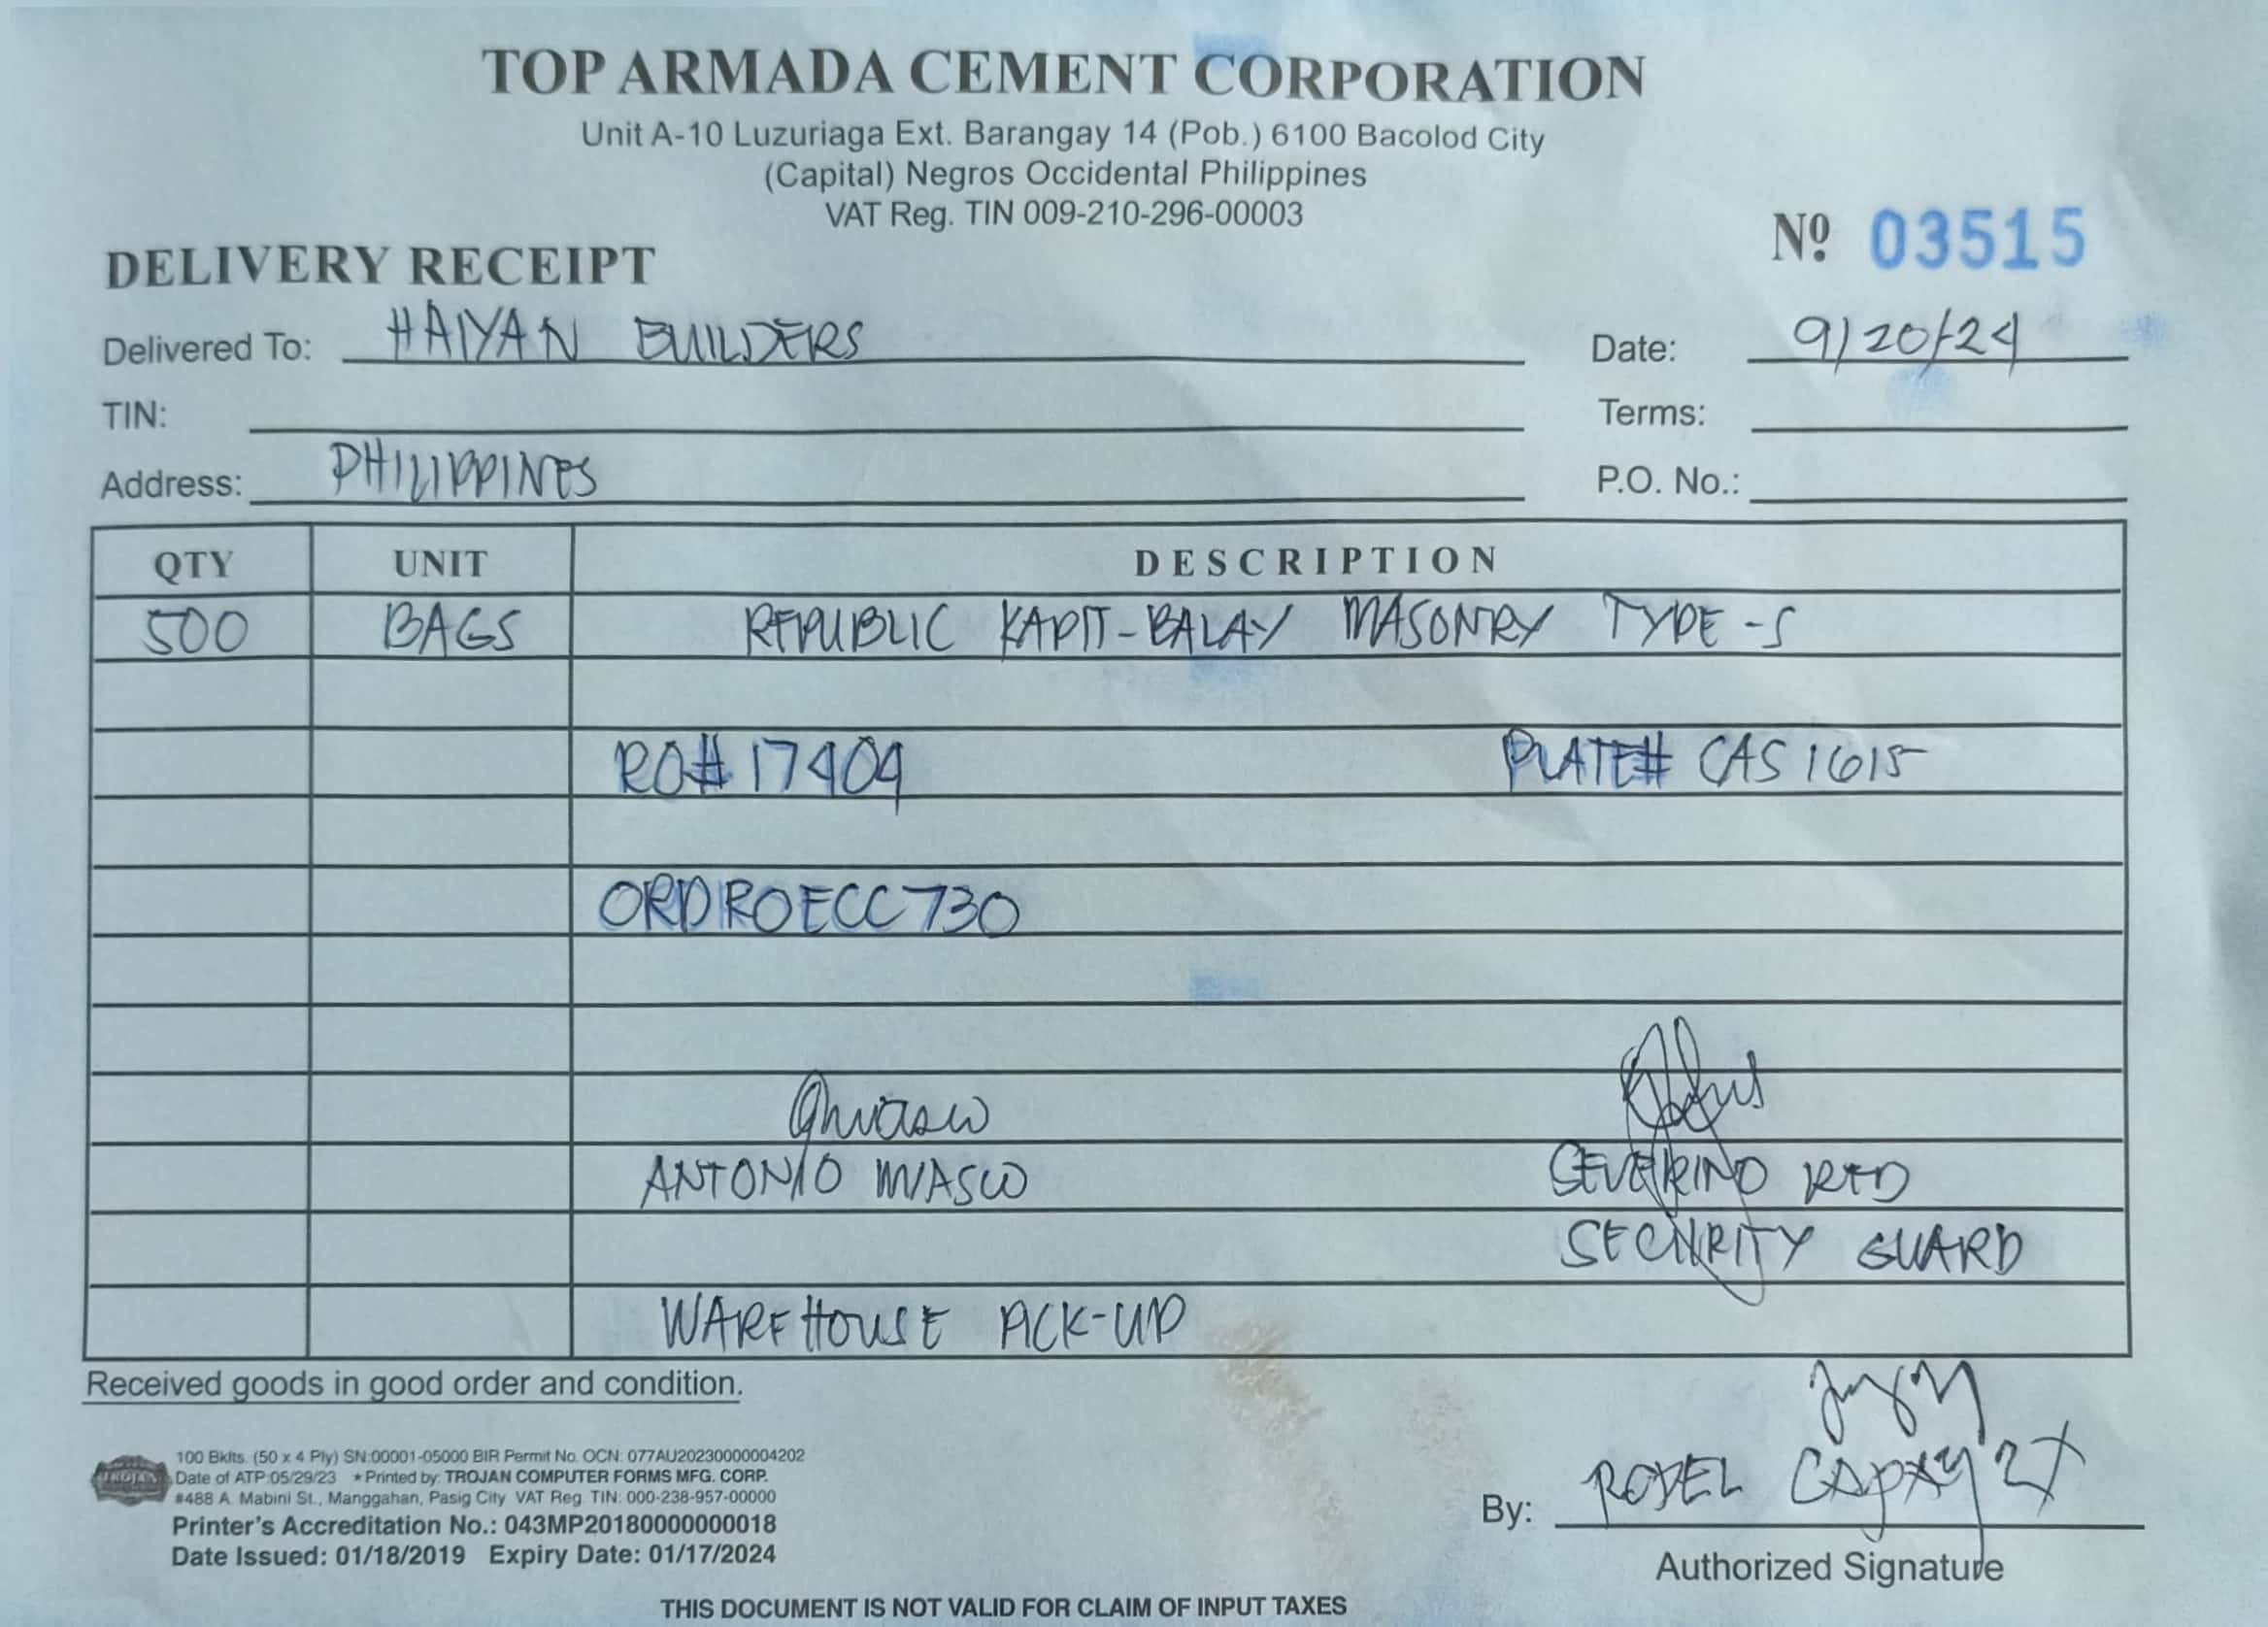 TOP ARMADA CEMENT CORPORATION
Unit A-10 Luzuriaga Ext. Barangay 14 (Pob.) 6100 Bacolod City
(Capital) Negros Occidental Philippines
VAT Reg. TIN 009-210-296-00003
Nº 03515
DELIVERY RECEIPT
Delivered To: HAIYAN BUILDERS
Date: 9/20/24
TIN:
Terms:
Address: PHILIPPINES
P.O. No.:
QTY UNIT DESCRIPTION
500 BAGS REPUBLIC KAPIT-BALAY MASONRY TYPE-S
RO# 17404 PLATE# CAS 1615
ORDROECC730
ANTONIO
SEVERINO RED
SECURITY GUARD
WAREHOUSE PICK-UP
Received goods in good order and condition.
TROJAN
100 Bklts. (50 x 4 Ply) SN:00001-05000 BIR Permit No. OCN: 077AU20230000004202
Date of ATP:05/29/23 ★Printed by: TROJAN COMPUTER FORMS MFG. CORP.
#488 A. Mabini St., Manggahan, Pasig City VAT Reg. TIN: 000-238-957-00000
Printer's Accreditation No.: 043MP20180000000018
Date Issued: 01/18/2019 Expiry Date: 01/17/2024
By: RODEL CAPAY
Authorized Signature
THIS DOCUMENT IS NOT VALID FOR CLAIM OF INPUT TAXES